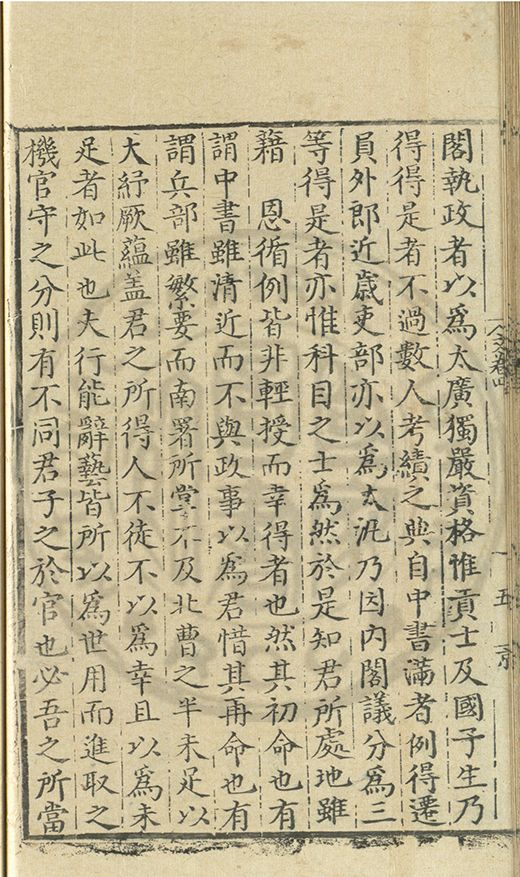 閣執政者以爲太廣獨嚴資格惟貢士及國子生乃
得得是者不過數人考績之典自中書滿者例得遷
員外郎近歲吏部亦以爲太汎乃因内閣議分爲三
等得是者亦惟科目之士爲然於是知君所處地雖
藉　恩循例皆非輕授而幸得者也然其初命也有
謂中書雖清近而不與政事以爲君惜其再命也有
謂兵部雖繁要而南署所掌不及北曹之半未足以
大紓厥蘊盖君之所得人不徒不以爲幸且以爲未
足者如此也夫行能辭藝皆所以爲世用而進取之
機官守之分則有不同君子之於官也必吾之所當
五